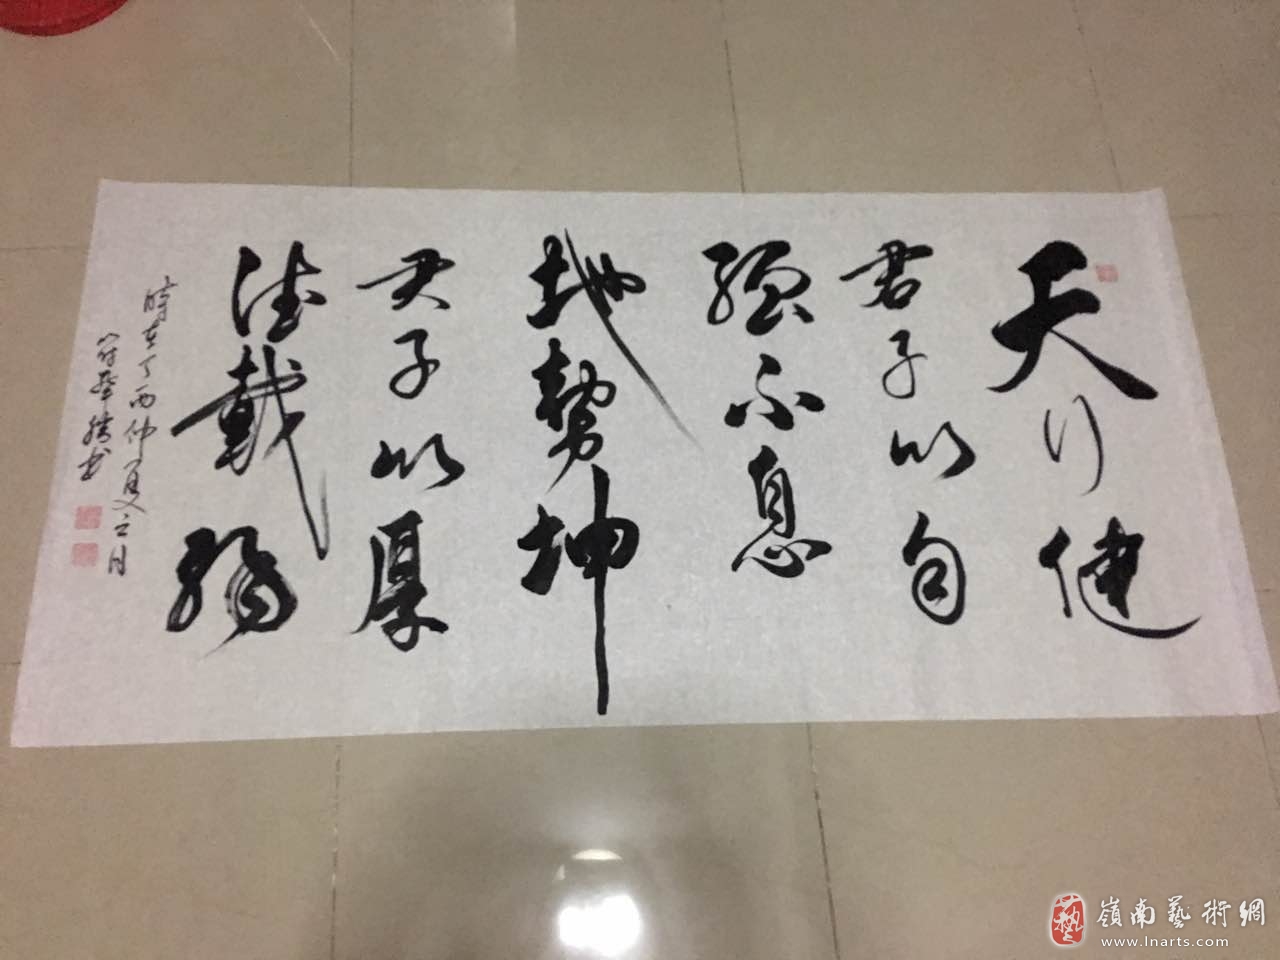 天行健
君子以自
强不息
地势坤
君子以厚
德载物
時在丁酉仲夏之月
符華勝书
嶺南藝術網
www.lnarts.com